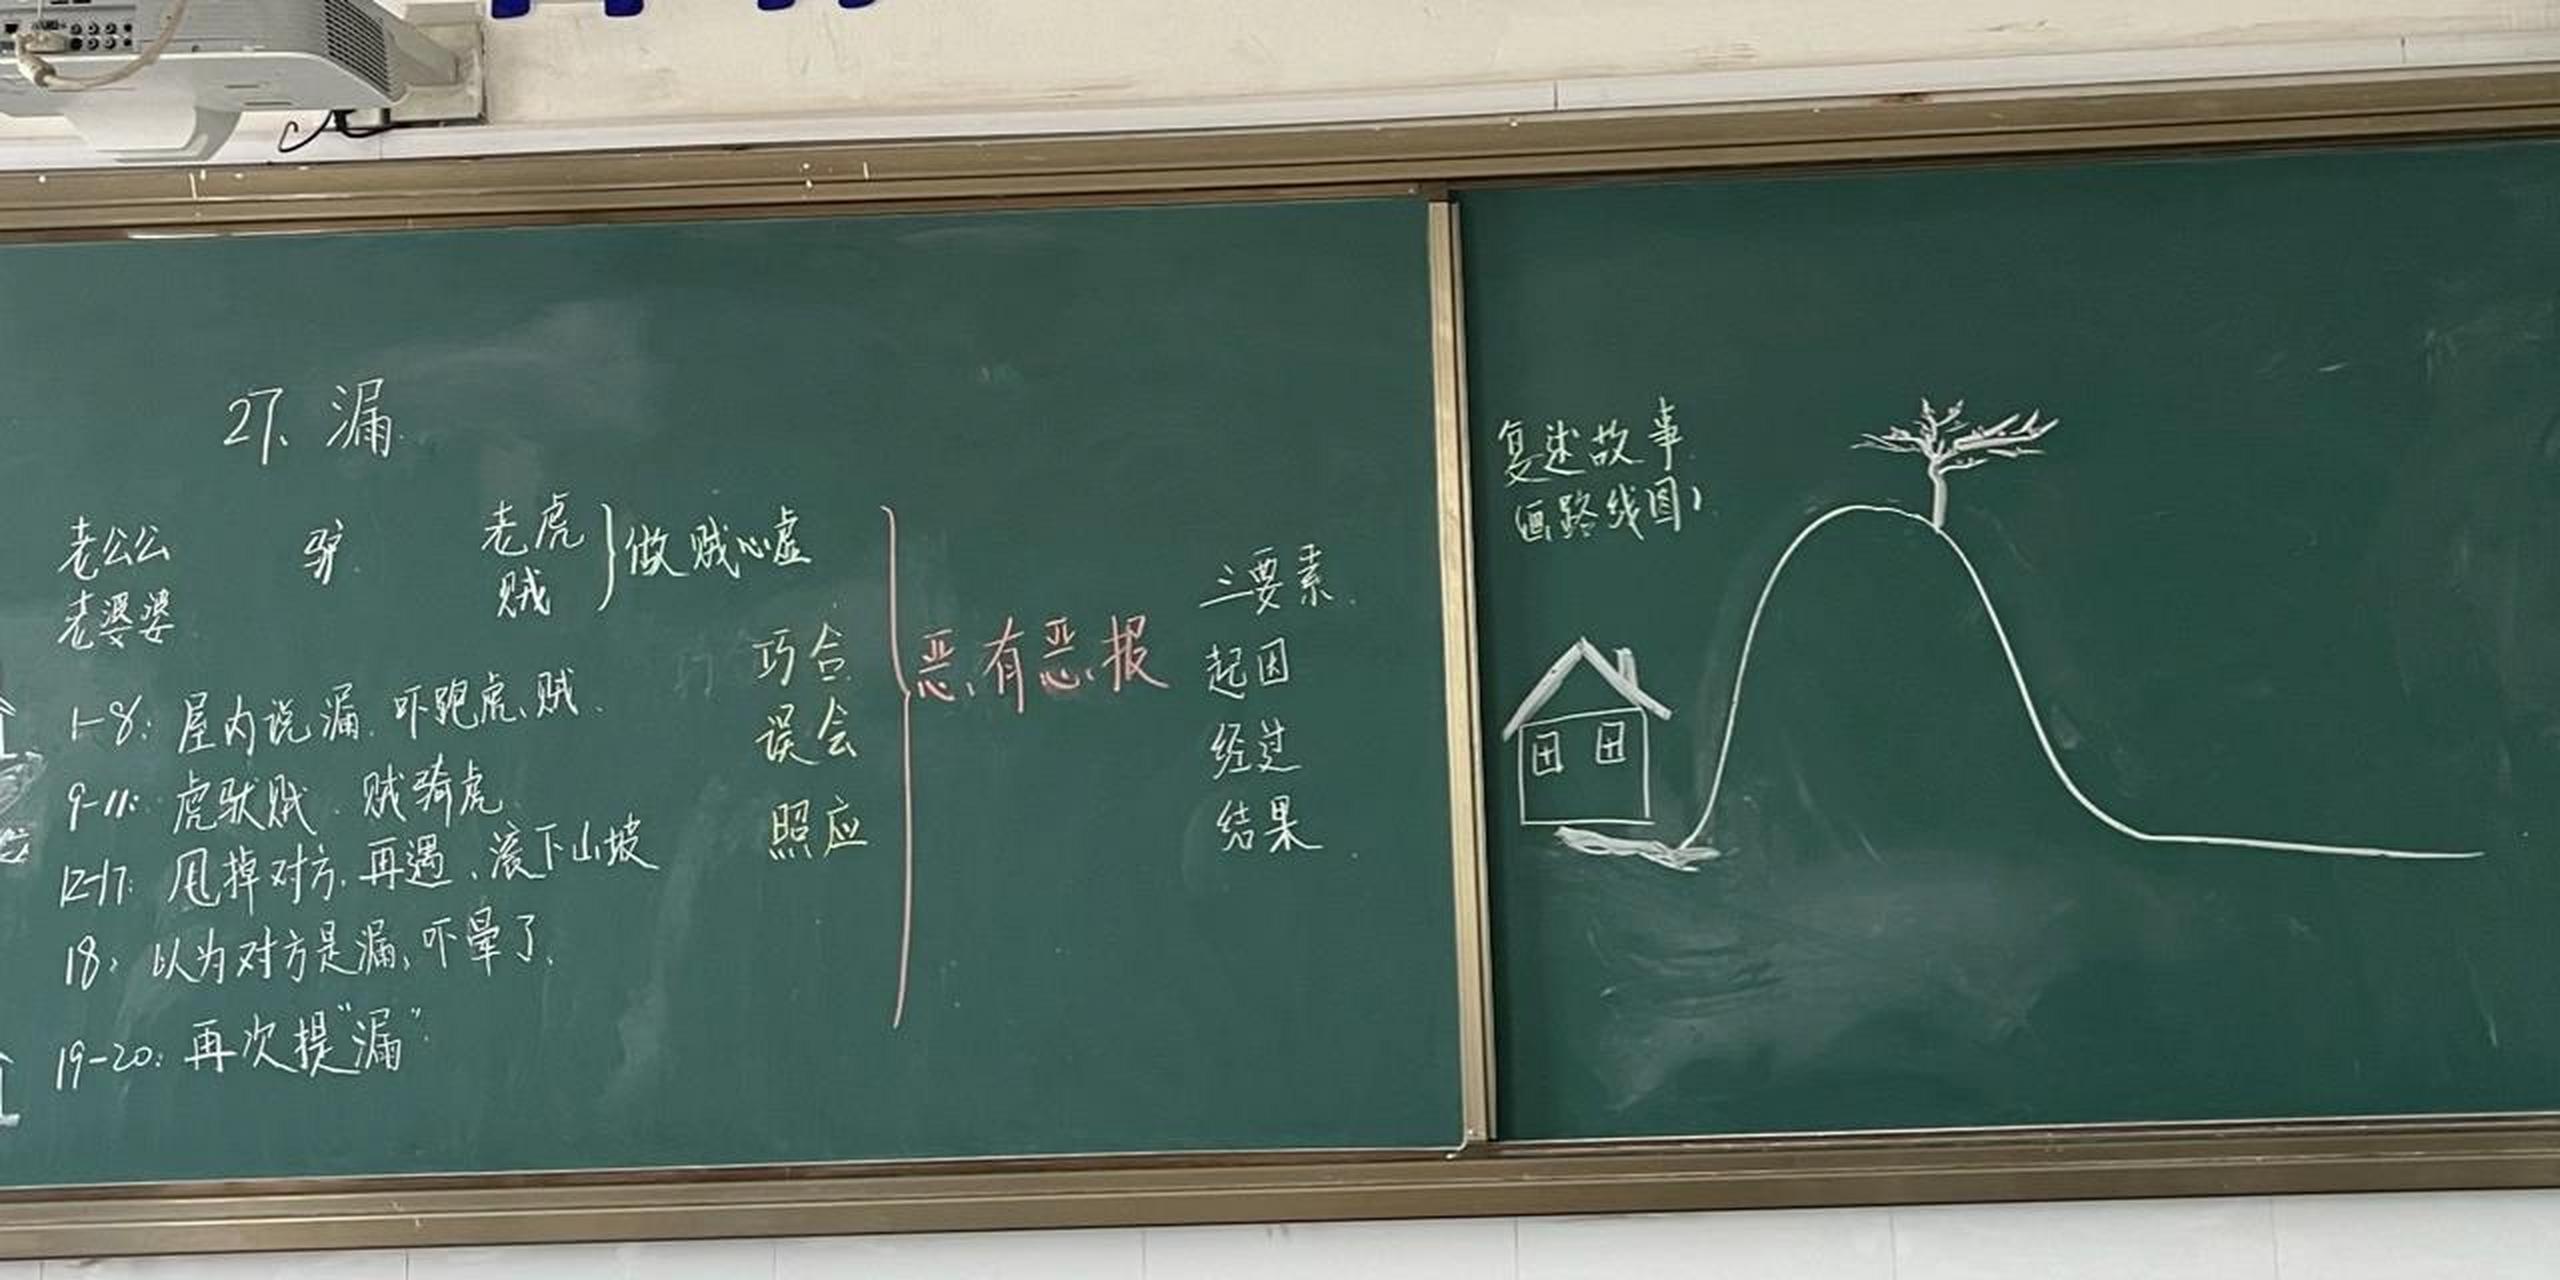 27、漏
老公公 驴 老虎
老婆婆 贼
}做贼心虚
1-8：屋内说漏、吓跑虎、贼
9-11：虎驮贼、贼骑虎
12-17：甩掉对方、再遇、滚下山坡
18：以为对方是漏、吓晕了
19-20：再次提“漏”
巧合
误会
照应
恶有恶报
三要素
起因
经过
结果
复述故事
(画路线图)